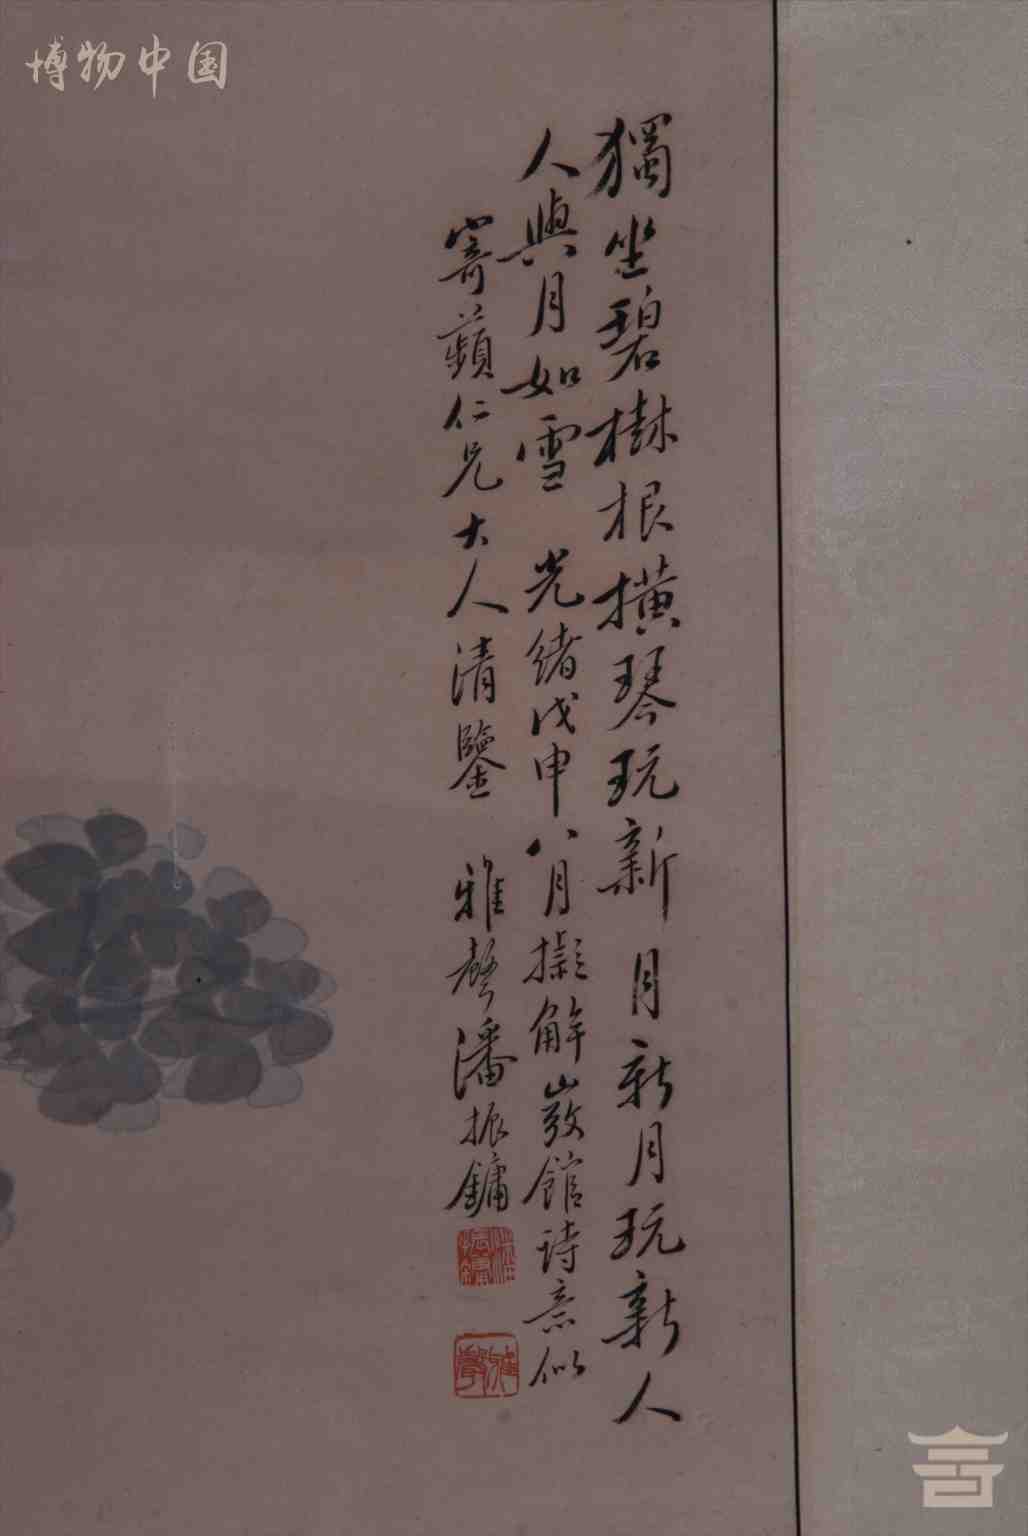 博物中国
獨坐碧樹根横琴玩新月新月玩新人
人與月如雪 光緒戊申八月擬解弢館詩意似
寄蘋仁兄大人清鑒 雅聲潘振鏞